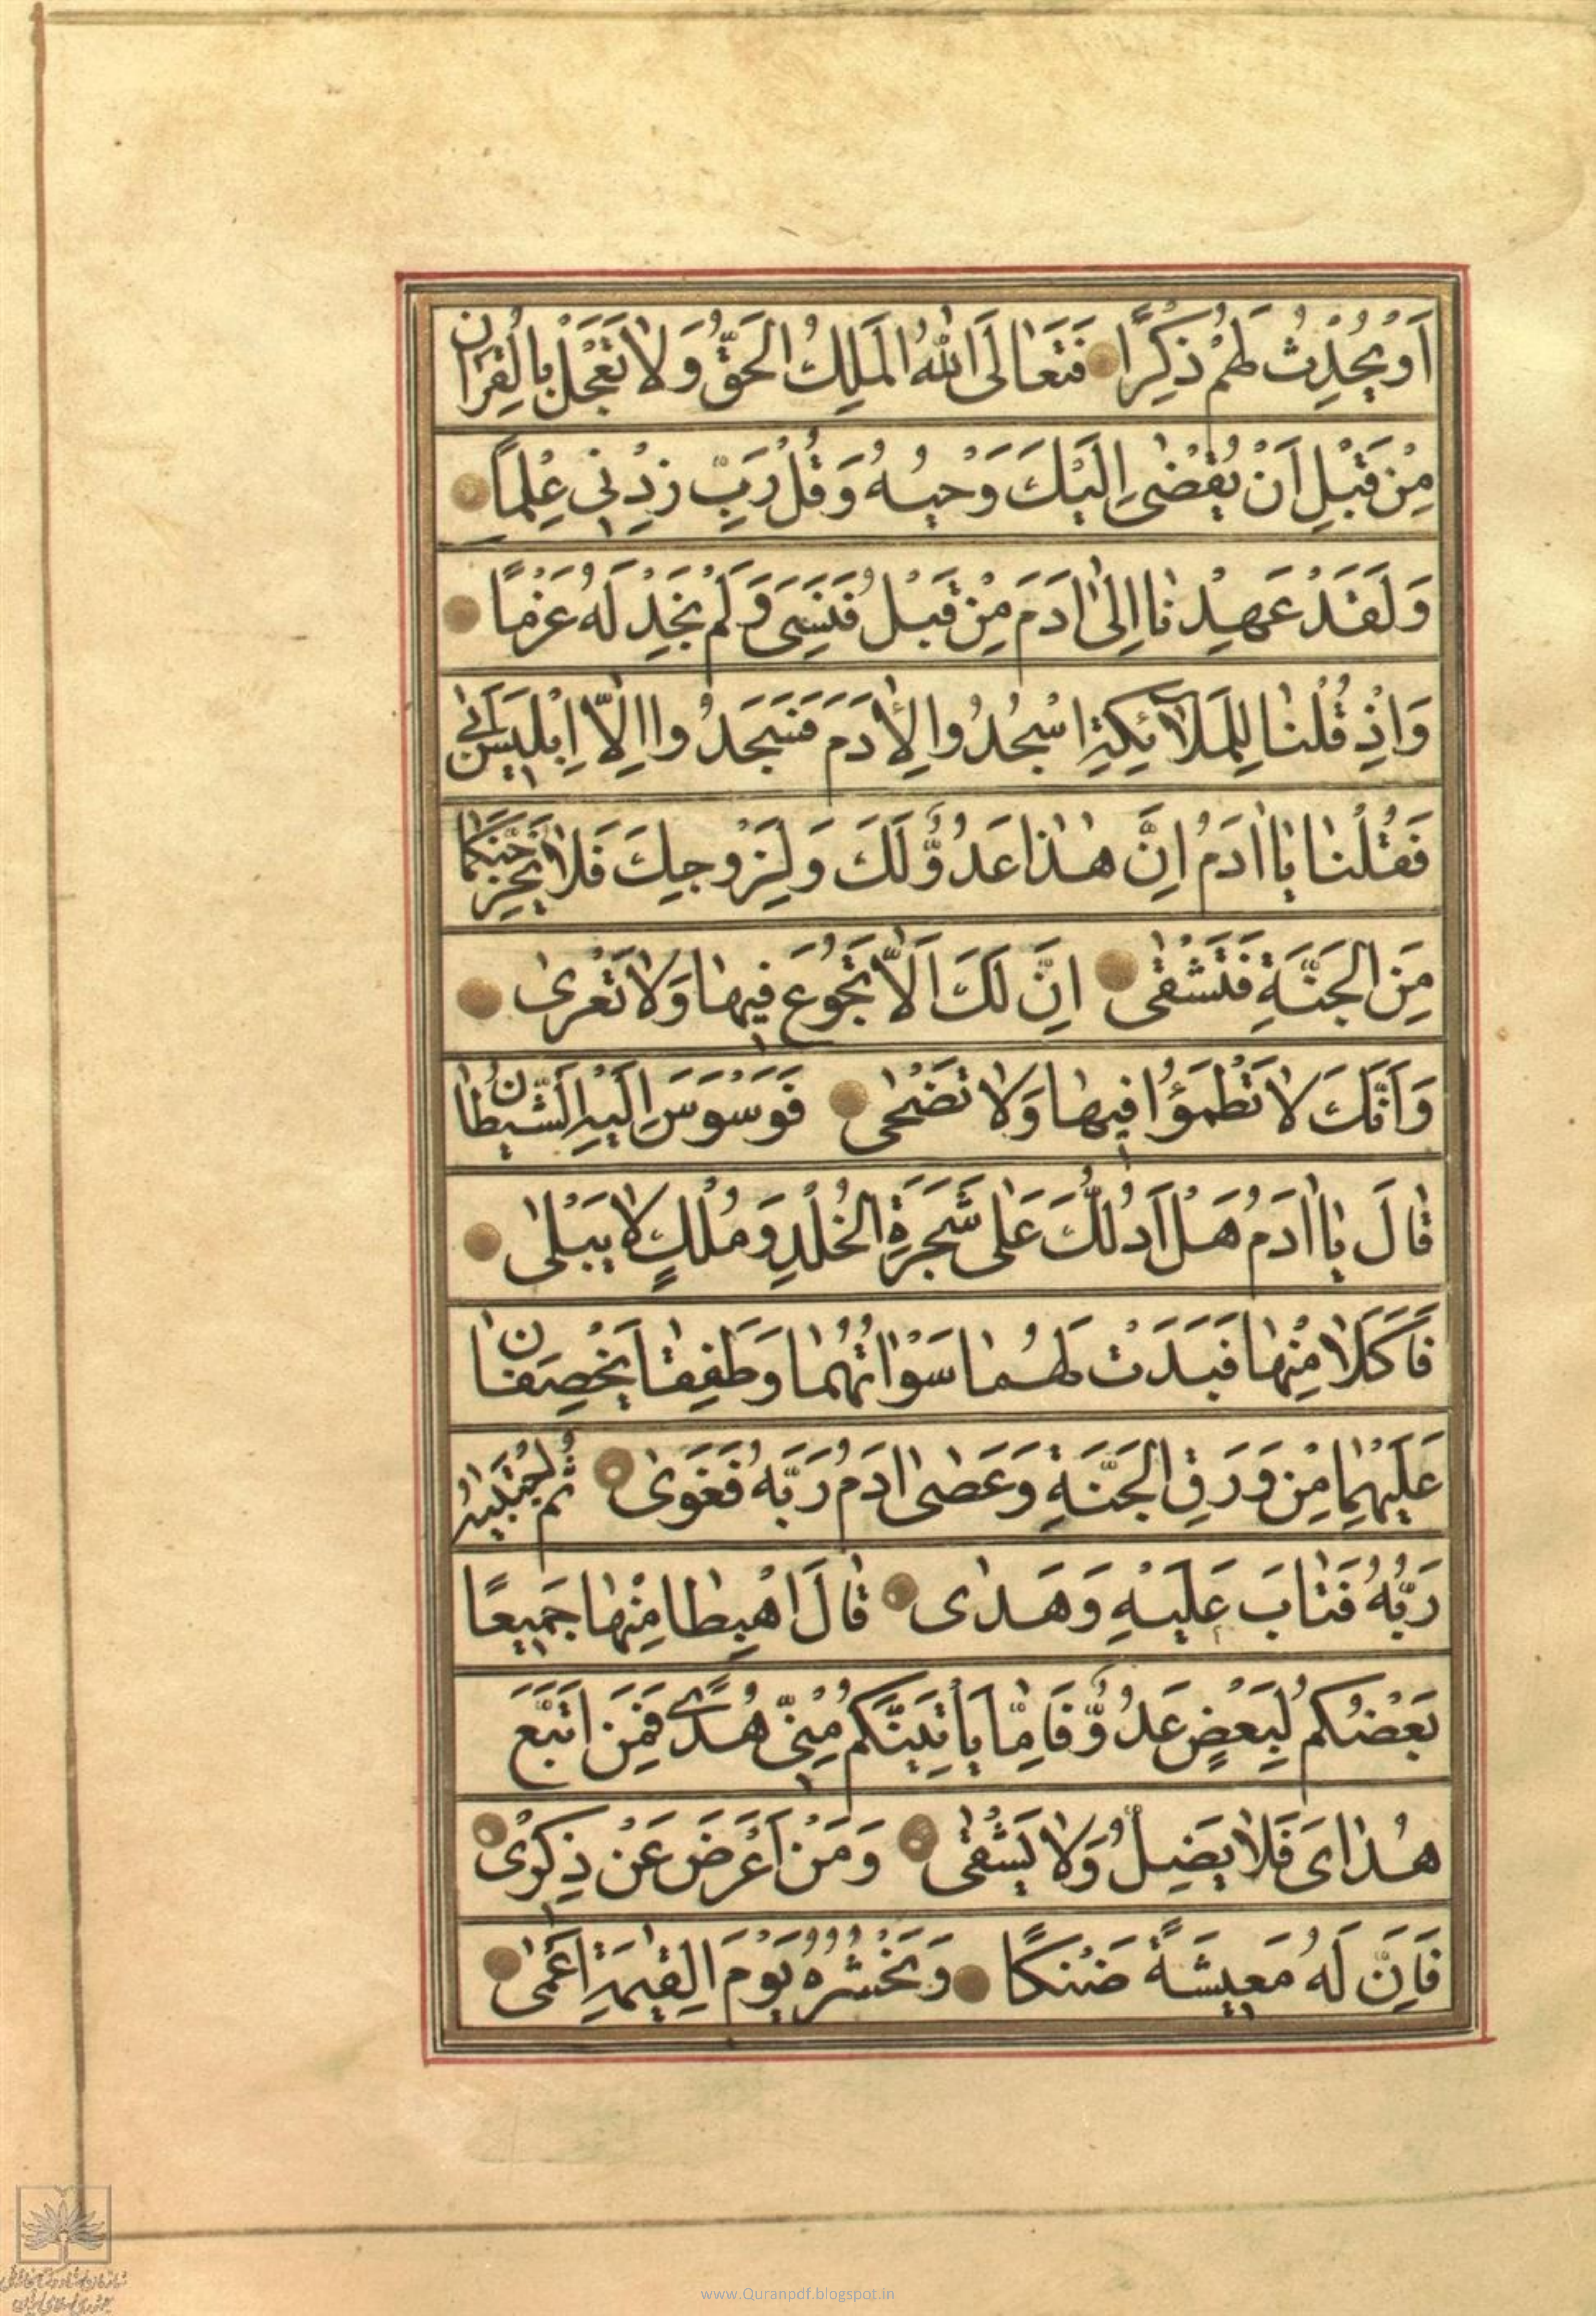 اَوْ يُحْدِثُ لَهُمْ ذِكْرًا فَتَعَالَى اللهُ الْمَلِكُ الْحَقُّ وَلا تَعْجَلْ بِالْقُرْانِ
مِنْ قَبْلِ اَنْ يُقْضٰى اِلَيْكَ وَحْيُهُ وَقُلْ رَبِّ زِدْنِى عِلْمًا
وَلَقَدْ عَهِدْنٰا اِلٰى اٰدَمَ مِنْ قَبْلُ فَنَسِىَ وَلَمْ نَجِدْ لَهُ عَزْمًا
وَاِذْ قُلْنٰا لِلْمَلآئِكَةِ اسْجُدُوا لِاٰدَمَ فَسَجَدُوا اِلّٰا اِبْلِيسَ اَبٰى
فَقُلْنٰا يٰا اٰدَمُ اِنَّ هٰذٰا عَدُوٌّ لَكَ وَلِزَوْجِكَ فَلاٰ يُخْرِجَنَّكُمٰا
مِنَ الْجَنَّةِ فَتَشْقٰى اِنَّ لَكَ اَلّٰا تَجُوعَ فِيهٰا وَلاٰ تَعْرىٰ
وَاَنَّكَ لاٰ تَظْمَؤُا فِيهٰا وَلاٰ تَضْحٰى فَوَسْوَسَ اِلَيْهِ الشَّيْطٰانُ
قٰالَ يٰا اٰدَمُ هَلْ اَدُلُّكَ عَلٰى شَجَرَةِ الْخُلْدِ وَمُلْكٍ لاٰ يَبْلٰى
فَاَكَلاٰ مِنْهٰا فَبَدَتْ لَهُمٰا سَوْاٰتُهُمٰا وَطَفِقٰا يَخْصِفٰانِ
عَلَيْهِمٰا مِنْ وَرَقِ الْجَنَّةِ وَعَصٰى اٰدَمُ رَبَّهُ فَغَوٰى ثُمَّ اجْتَبٰيهُ
رَبُّهُ فَتٰابَ عَلَيْهِ وَهَدٰى قٰالَ اهْبِطٰا مِنْهٰا جَمِيعًا
بَعْضُكُمْ لِبَعْضٍ عَدُوٌّ فَاِمّٰا يَأْتِيَنَّكُمْ مِنِّى هُدًى فَمَنِ اتَّبَعَ
هُدٰاىَ فَلاٰ يَضِلُّ وَلاٰ يَشْقٰى وَمَنْ اَعْرَضَ عَنْ ذِكْرِى
فَاِنَّ لَهُ مَعِيشَةً ضَنْكًا وَنَحْشُرُهُ يَوْمَ الْقِيٰمَةِ اَعْمٰى
www.Quranpdf.blogspot.in